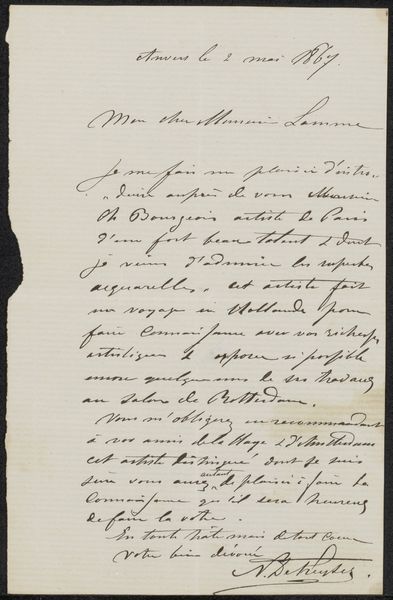 Anvers le 2 mai 1867.
Mon cher Monsieur Lamme
Je me fais un plaisir d'intro-
-duire auprès de vous Monsieur
Ch Bourgeois artiste de Paris
d'un fort beau talent & dont
je viens d'admirer les superbes
acquarelles, cet artiste fait
un voyage en Hollande pour
faire connaissance avec vos richesses
artistiques & exposer si possible
encore quelques uns de ses travaux
au Salon de Rotterdam.
Vous m'obligerez en recommandant
à vos amis de la Haye & d'Amsterdam
cet artiste distingué dont je suis
sûre vous aurez autant de plaisir à faire la
connaissance qu'il sera heureux
de faire la votre.
En toute hâte mais de tout coeur
Votre bien dévoué
N. De Keyser